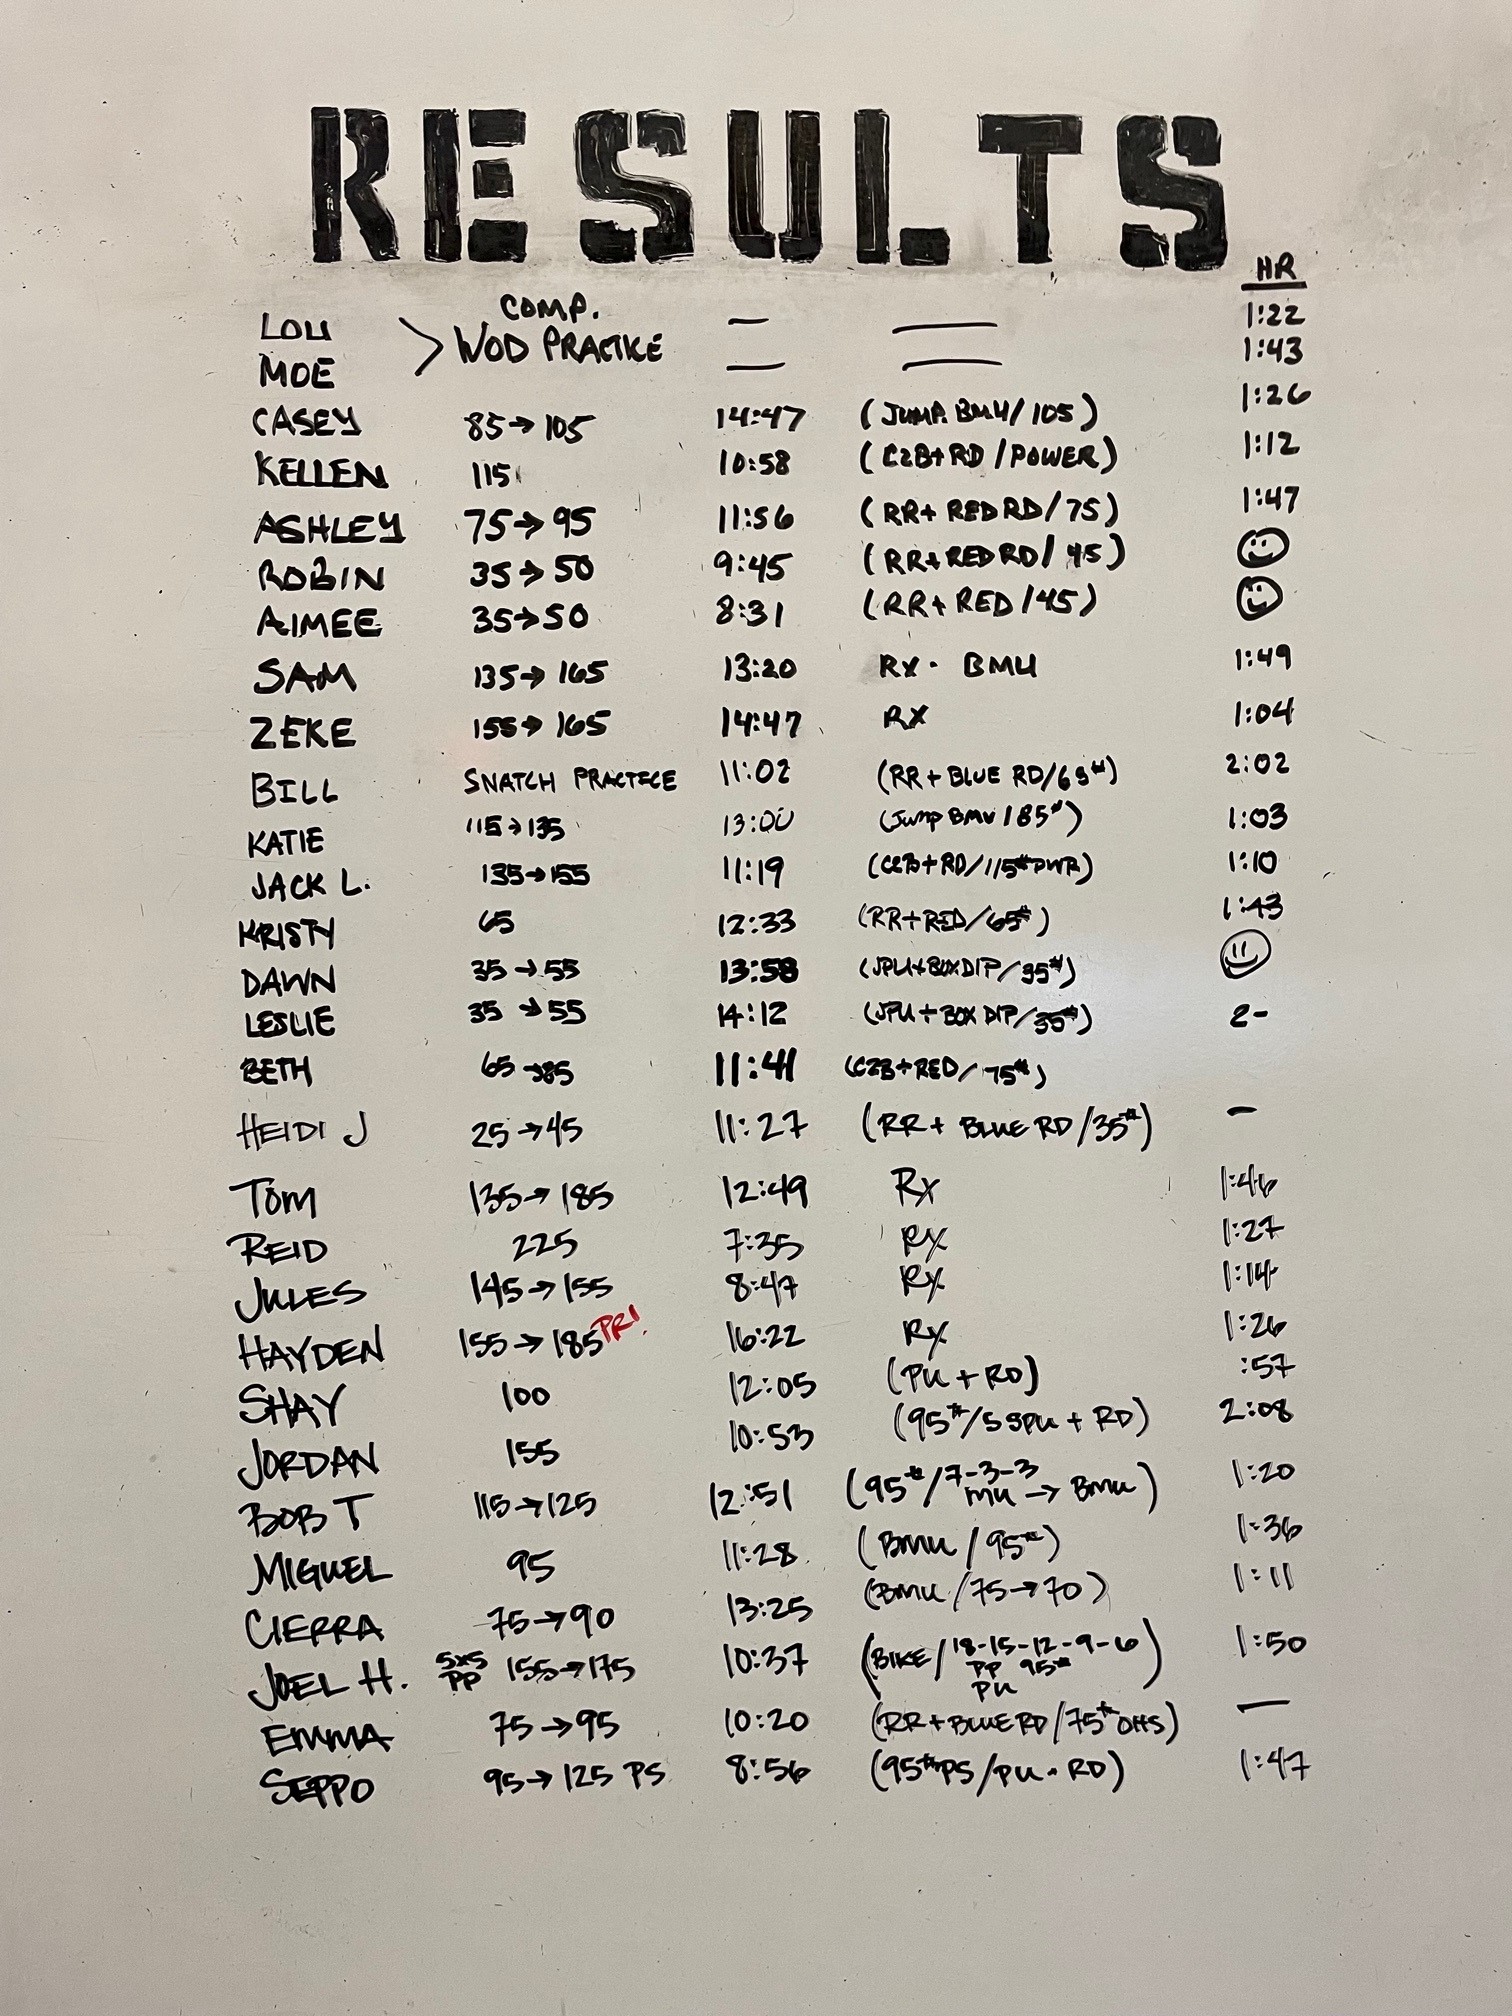 RESULTS
HR
LOU > COMP. WOD PRACTICE — — 1:22
MOE — — 1:43
CASEY 85→105 14:47 (JUMP. BMU/105) 1:26
KELLEN 115 10:58 (C2B+RD/POWER) 1:12
ASHLEY 75→95 11:56 (RR+RED RD/75) 1:47
ROBIN 35→50 9:45 (RR+RED RD/45) ☺
AIMEE 35→50 8:31 (RR+RED/45) ☺
SAM 135→165 13:20 RX· BMU 1:49
ZEKE 155→165 14:47 RX 1:04
BILL SNATCH PRACTICE 11:02 (RR+BLUE RD/63#) 2:02
KATIE 115→135 13:00 (Jump BMU/85#) 1:03
JACK L. 135→155 11:19 (C2B+RD/115#PWR) 1:10
KRISTY 65 12:33 (RR+RED/65#) 1:43
DAWN 35→55 13:58 (JPU+BOXDIP/35#) ☺
LESLIE 35→55 14:12 (JPU+BOX DIP/35#) 2-
BETH 65→85 11:41 (C2B+RED/75#)
HEIDI J 25→45 11:27 (RR+BLUE RD/35#) —
TOM 135→185 12:49 Rx 1:46
REID 225 7:35 Rx 1:27
JULES 145→155 8:47 Rx 1:14
HAYDEN 155→185 PR! 16:22 Rx 1:26
SHAY 100 12:05 (PU+RD) :57
JORDAN 155 10:53 (95#/5 SPU+RD) 2:08
BOB T 115→125 12:51 (95#/7-3-3 MU→BMU) 1:20
MIGUEL 95 11:28 (BMU/95#) 1:36
CIERRA 75→90 13:25 (BMU/75→70) 1:11
JOEL H. 5x5 PP 155→175 10:37 (BIKE/18-15-12-9-6 PP 95# PU) 1:50
EMMA 75→95 10:20 (RR+BLUE RD/75# OHS) —
SEPPO 95→125 PS 8:56 (95#PS/PU·RD) 1:47